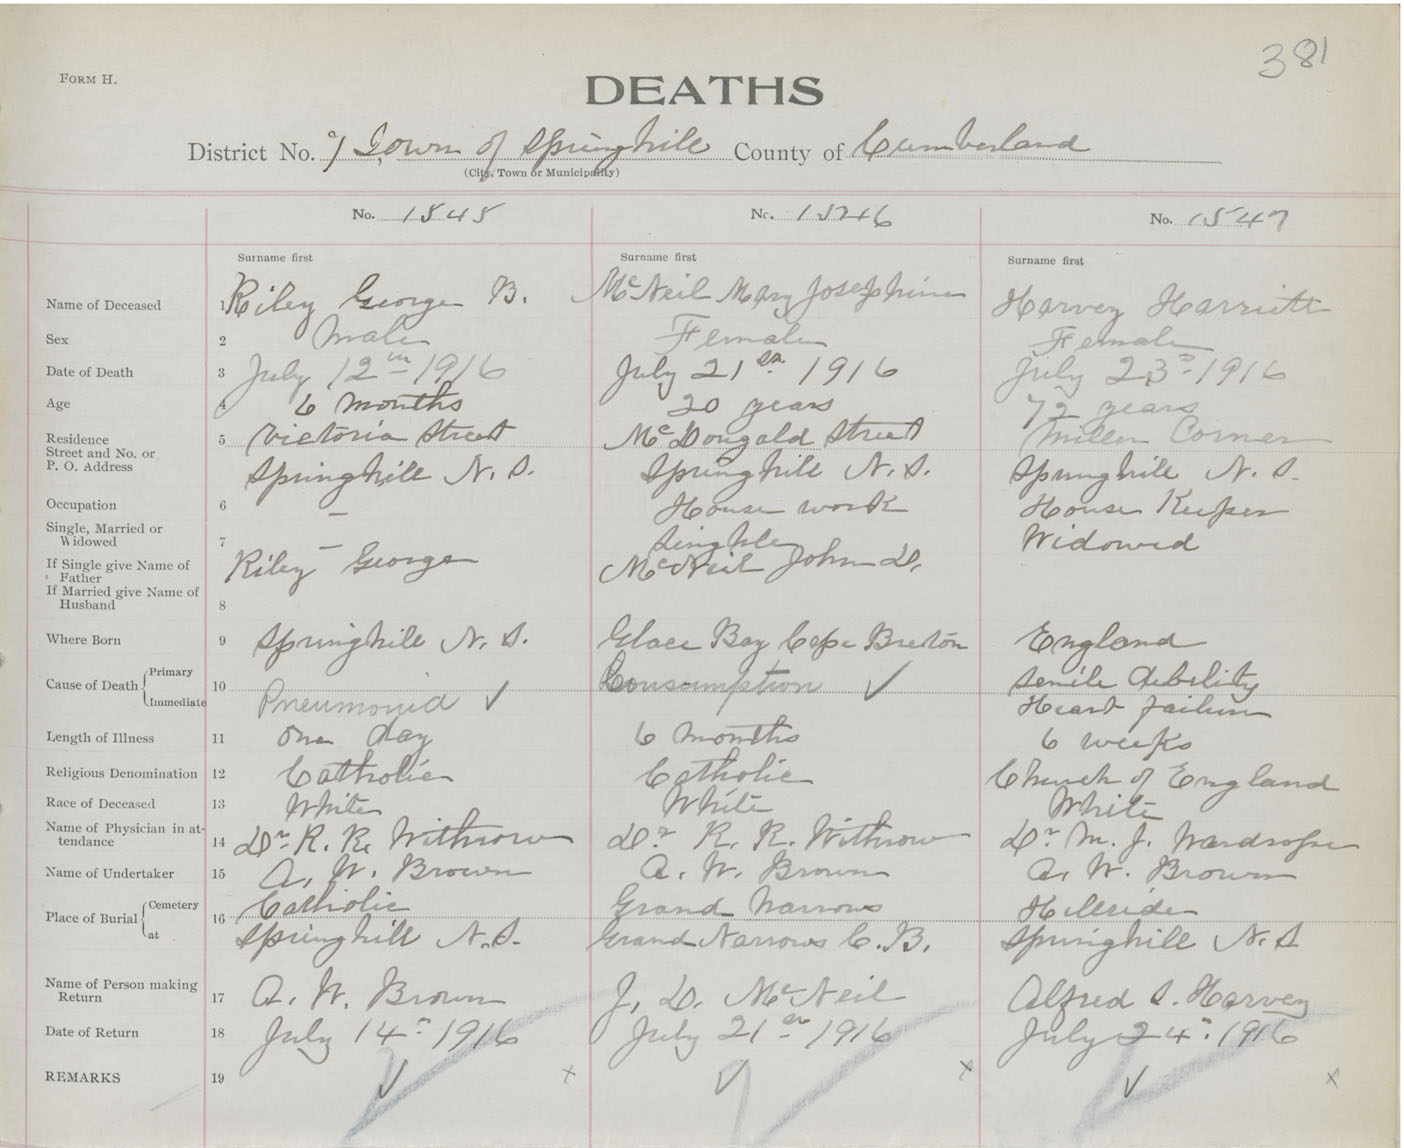 381
FORM H.
DEATHS
District No. 7 Town of Springhill County of Cumberland
(City, Town or Municipality)
No. 1545 No. 15246 No. 1547
Surname first Surname first Surname first
Name of Deceased 1 Riley George B. McNeil Mary Josephine Harvey Harriett
Sex 2 Male Female Female
Date of Death 3 July 12th 1916 July 21st 1916 July 23rd 1916
Age 4 6 months 20 years 72 years
Residence 5 Victoria Street McDougald Street Miller Corner
Street and No. or
P. O. Address Springhill N. S. Springhill N. S. Springhill N. S.
Occupation 6 — House work House Keeper
Single, Married or
Widowed 7 — Singhle Widowed
If Single give Name of
Father Riley George McNeil John D.
If Married give Name of
Husband 8
Where Born 9 Springhill N. S. Glace Bay Cape Breton England
Cause of Death Primary 10 Consumption ✓ Senile Debility
Immediate Pneumonia ✓ Heart failure
Length of Illness 11 One day 6 months 6 weeks
Religious Denomination 12 Catholic Catholic Church of England
Race of Deceased 13 White White White
Name of Physician in at-
tendance 14 Dr. R. R. Withrow Dr. R. R. Withrow Dr. M. J. Wardrope
Name of Undertaker 15 A. W. Brown A. W. Brown A. W. Brown
Place of Burial Cemetery 16 Catholic Grand Narrows Hillside
at Springhill N. S. Grand Narrows C. B. Springhill N. S
Name of Person making
Return 17 A. W. Brown J. D. McNeil Alfred S. Harvey
Date of Return 18 July 14th 1916 July 21st 1916 July 24th 1916
REMARKS 19 ✓ x ✓ x ✓ x